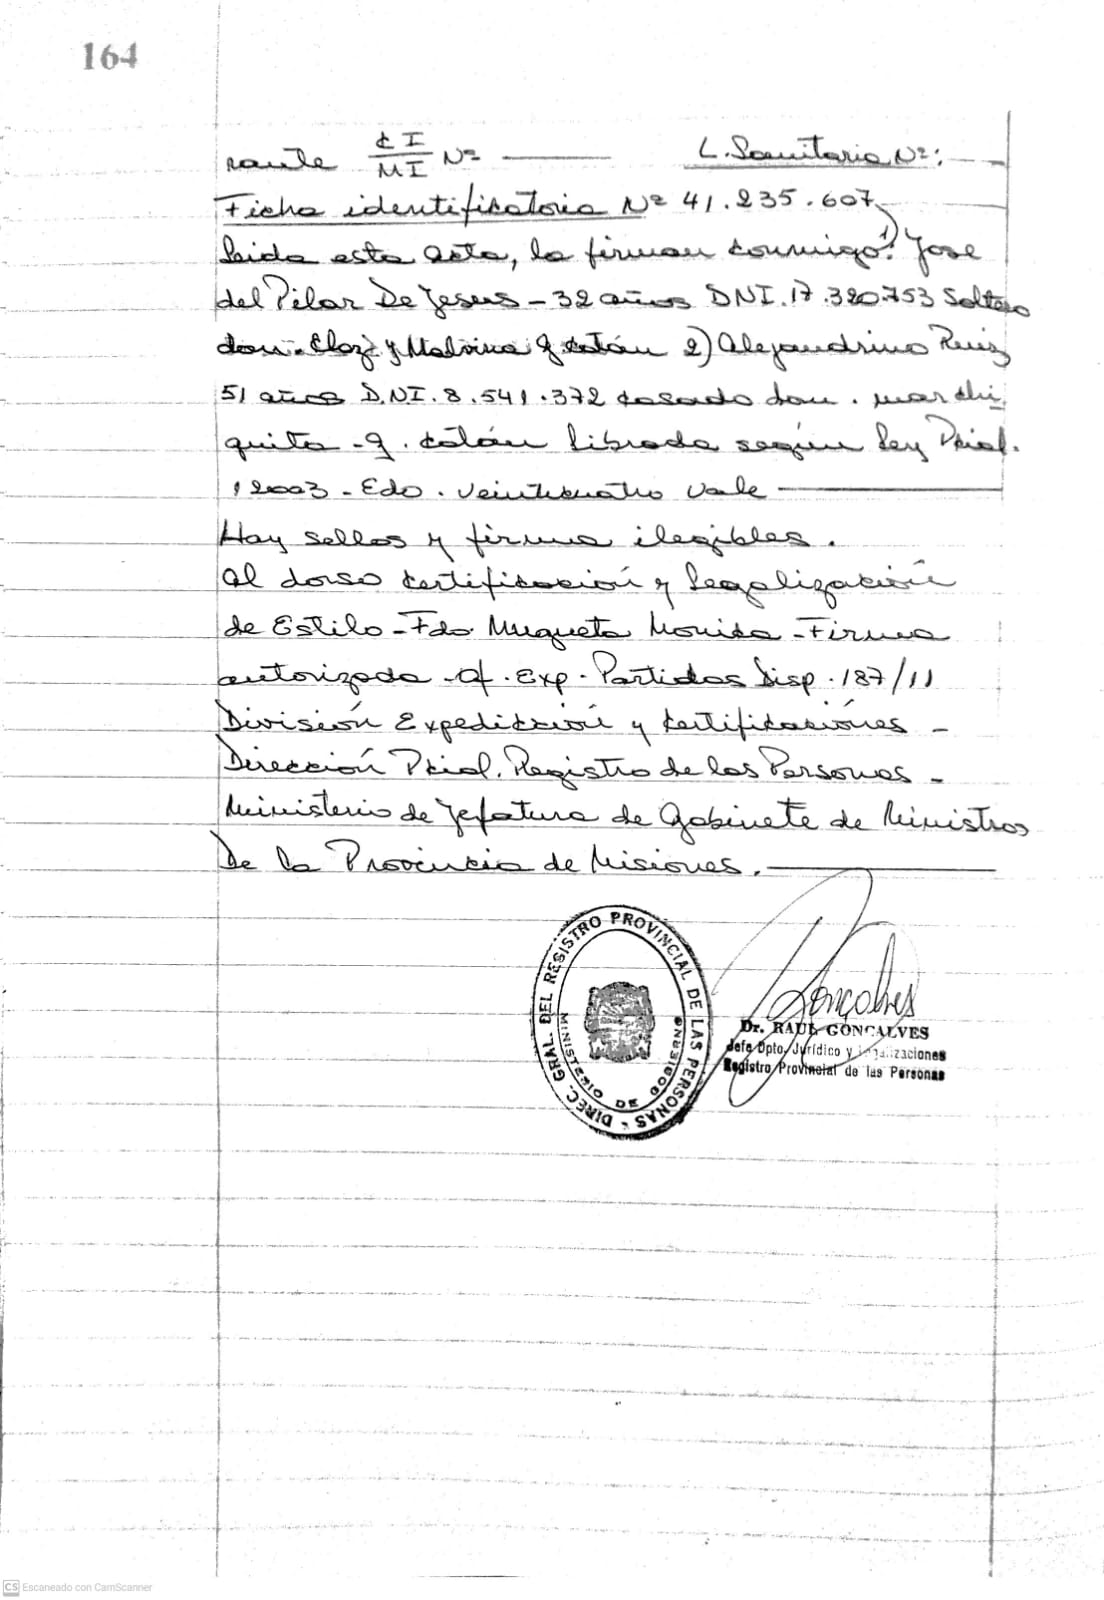 164
rante CI/MI Nº ——— L. Sanitaria Nº: —
Ficha identificatoria Nº 41.235.607
Leida esta acta, la firman conmigo: 1) Jose
del Pilar De Jesus - 32 años DNI. 17.320.753 Soltero
dom. Eloy y Malvina G. Colón 2) Alejandrino Ruiz
51 años D.NI. 8.541.372 casado dom. mar chi
quita - G. Colón Librada según Ley Pcial.
12003 - Edo. veinticuatro vale ———
Hay sellos y firma ilegibles.
al dorso certificación y Legalización
de Estilo - Fdo. Mugueta Monica - Firma
autorizada - Of. Exp. Partidas Disp. 187/11
División Expedicción y Certificaciónes -
Dirección Pcial. Registro de las Personas -
Ministerio de Jefatura de Gabinete de Ministros
De la Provincia de Misiones. ———
DIREC. GRAL. DEL REGISTRO PROVINCIAL DE LAS PERSONAS -
MINISTERIO DE GOBIERNO
Gonçalves
Dr. RAUL GONCALVES
Jefe Dpto. Jurídico y Legalizaciones
Registro Provincial de las Personas
CS Escaneado con CamScanner